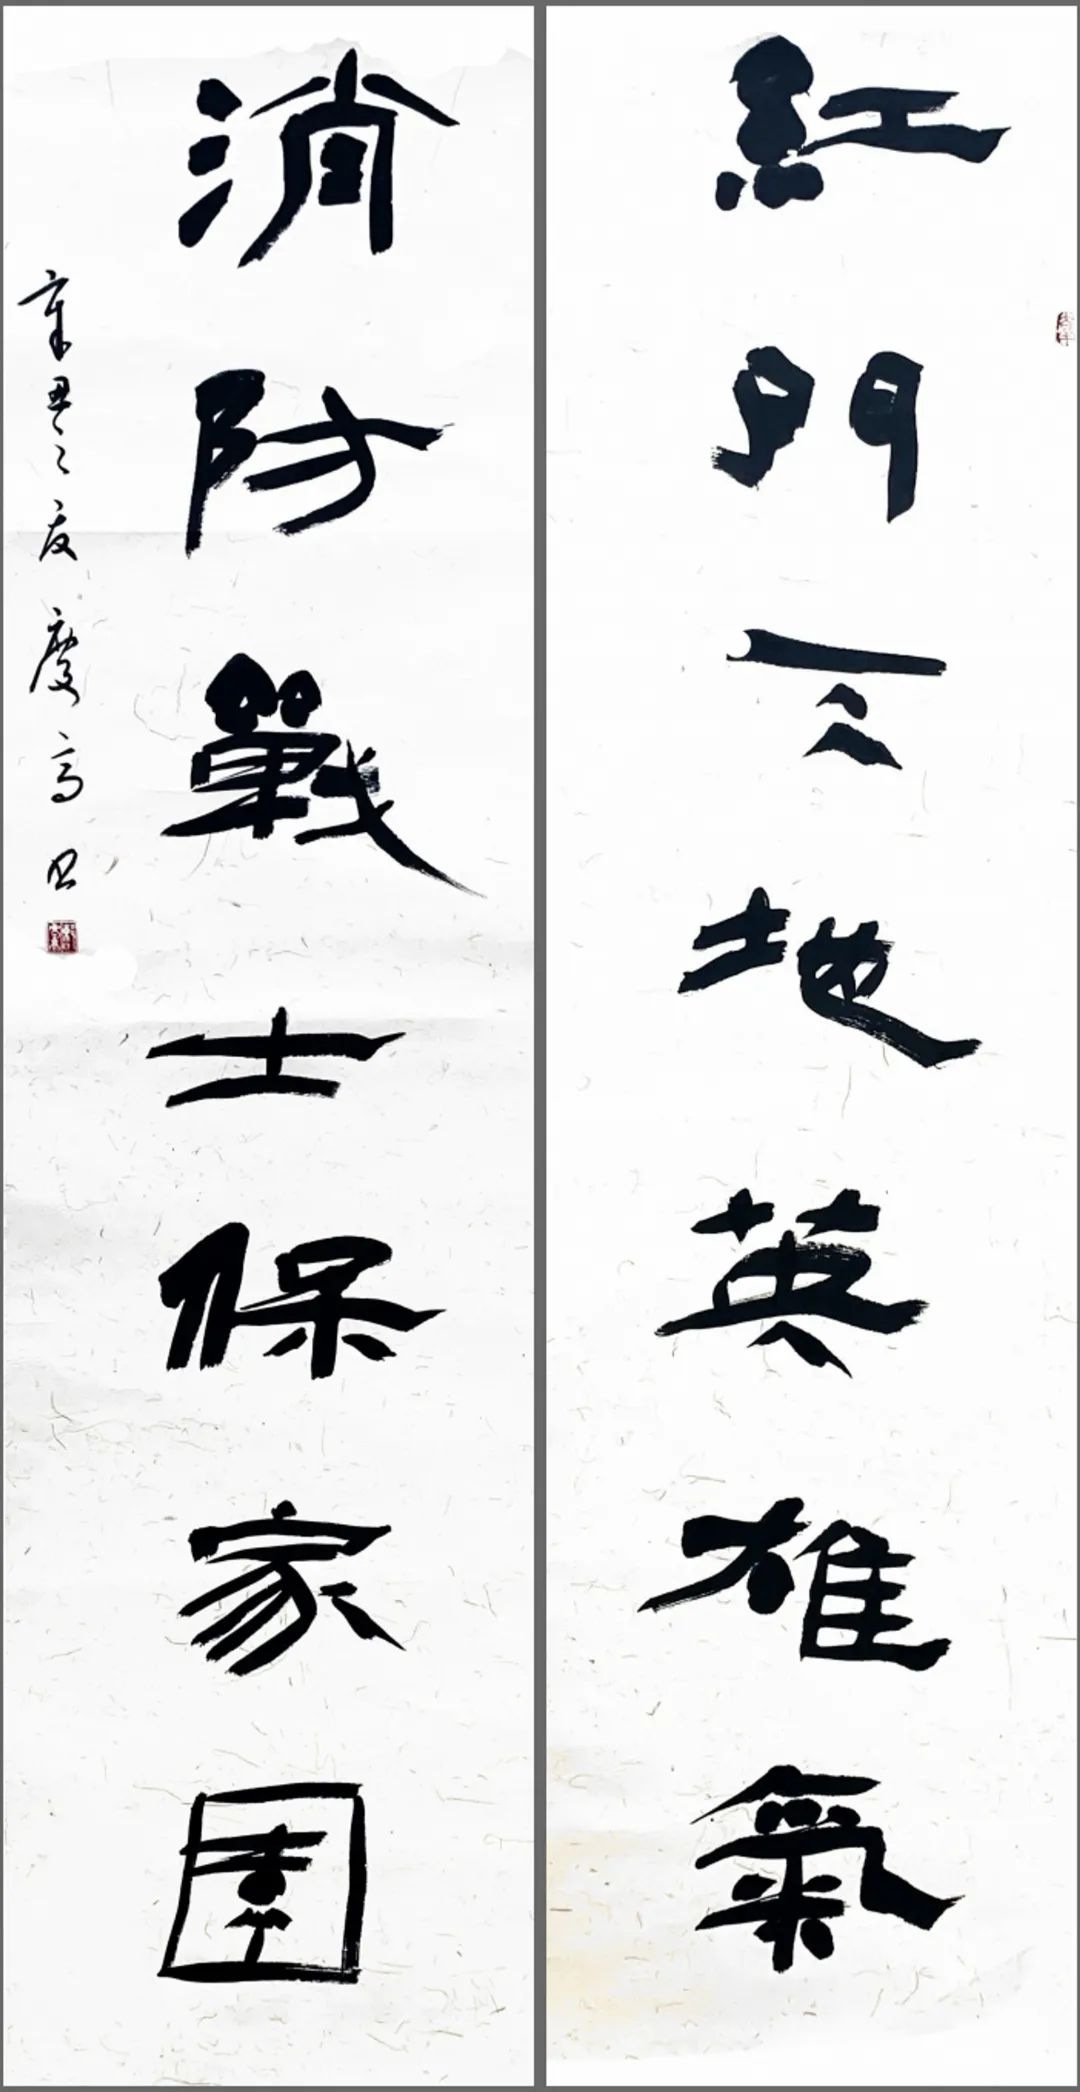 紅門天地英雄氣
消防戰士保家園
辛丑之夏慶高书